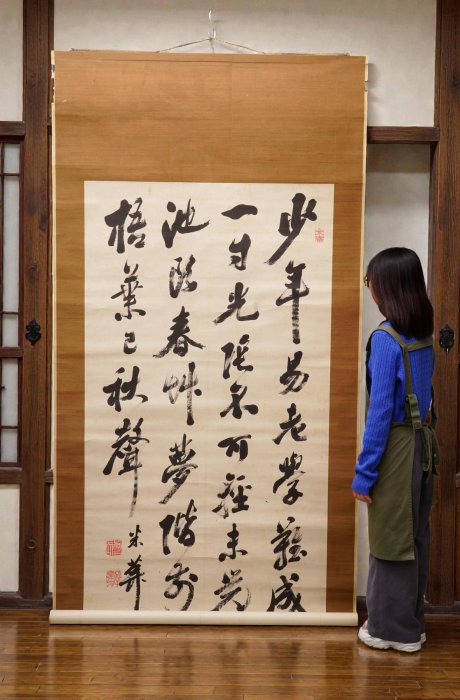 少年易老學難成
一寸光陰不可輕未覺
池塘春艸夢階前
梧葉已秋聲
米葊